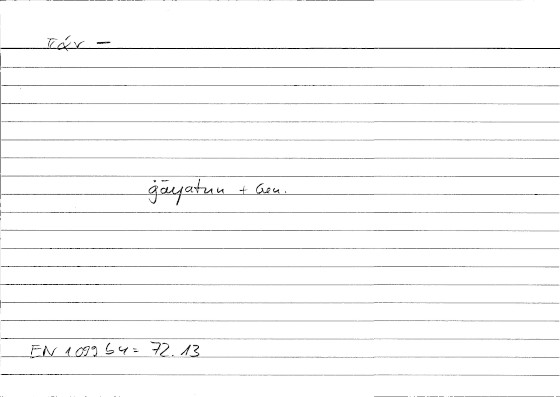 πάν —
ġāyatun + Gen.
EN 1099 b4 = 72.13